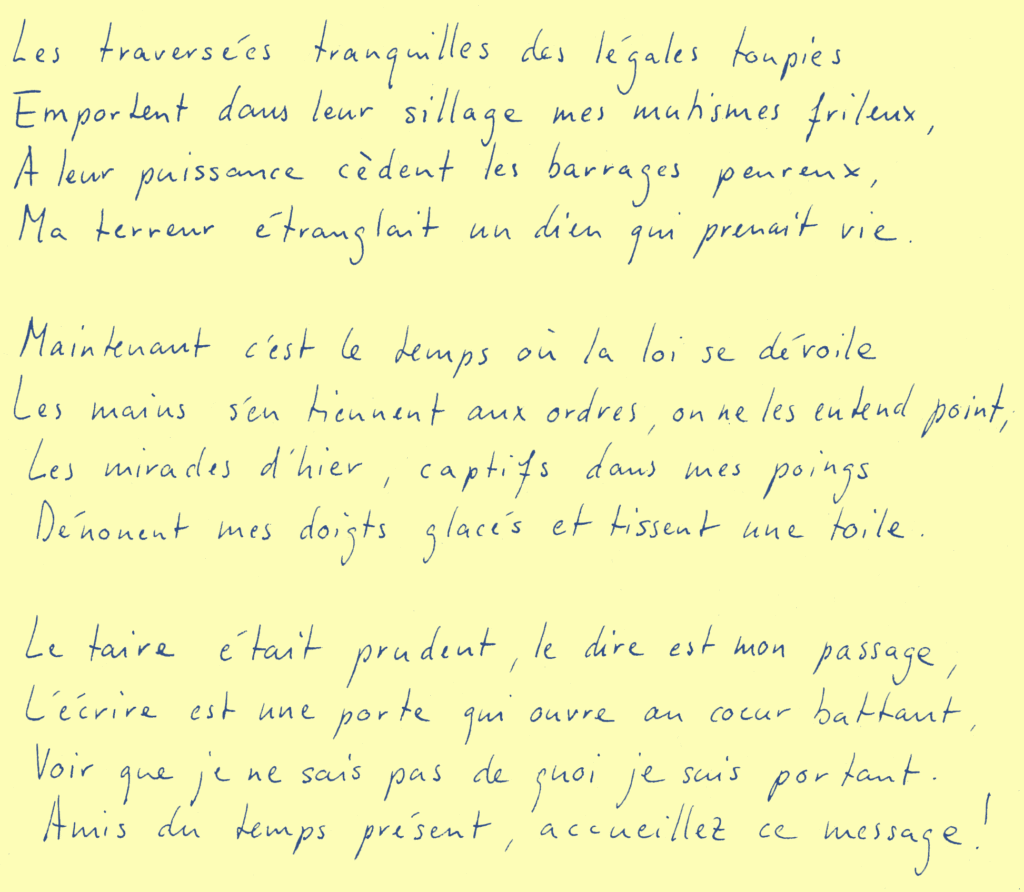 Les traversées tranquilles des légales toupies
Emportent dans leur sillage mes mutismes frileux,
A leur puissance cèdent les barrages peureux,
Ma terreur étranglait un dieu qui prenait vie.

Maintenant c'est le temps où la loi se dévoile
Les mains s'en tiennent aux ordres, on ne les entend point,
Les miracles d'hier, captifs dans mes poings
Dénouent mes doigts glacés et tissent une toile.

Le taire était prudent, le dire est mon passage,
L'écrire est une porte qui ouvre au coeur battant,
Voir que je ne sais pas de quoi je suis portant.
Amis du temps présent, accueillez ce message!